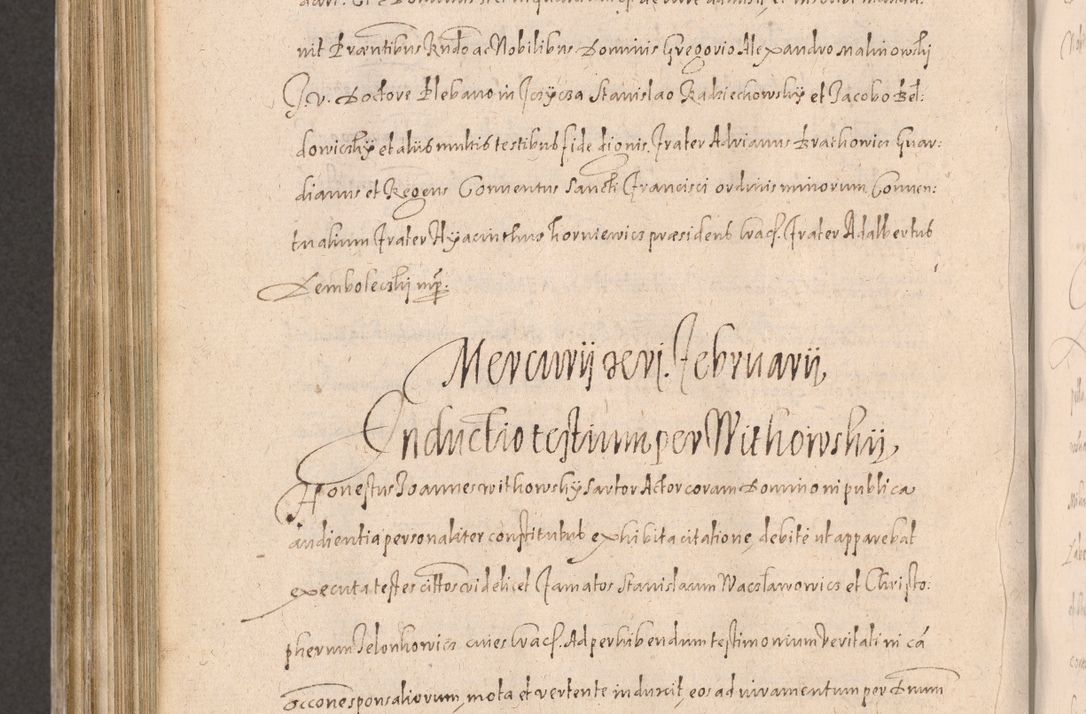 nit Præntibus Rndo ac Nobilibus Dominis Gregorio Alexandro Malinowskj
J. v. Doctore Plebano in Stanislao Radziechowsky et Jacobo Bel:
dowiczky et aliis multis testibus fide dignis. Frater Adrianus Bratkowicz Guar:
dianus et Regens Conventus Sancti Francisci ordinis minorum Conven:
tualium Frater Hyacinthus Korniewicz præsidens Cracs. Frater Adalbertus
Demboleczkj mp.
Mercurij Februarij
Inductio testium per Withowskij
Honestus Joannes Withowsky Sartor Actor coram Domino in publica
audientia personaliter constitutus exhibita citatione, debitè ut apparebat
executa testes cittos videlicet Famatos Stanislaum Waczlawowicz et Christo:
pherum Jelonkowicz cives Cracs. Ad perhibendum testimonium veritati in câ
occõne sponsaliorum, mota et vertente induxit, eos ad iuramentum per Dnum